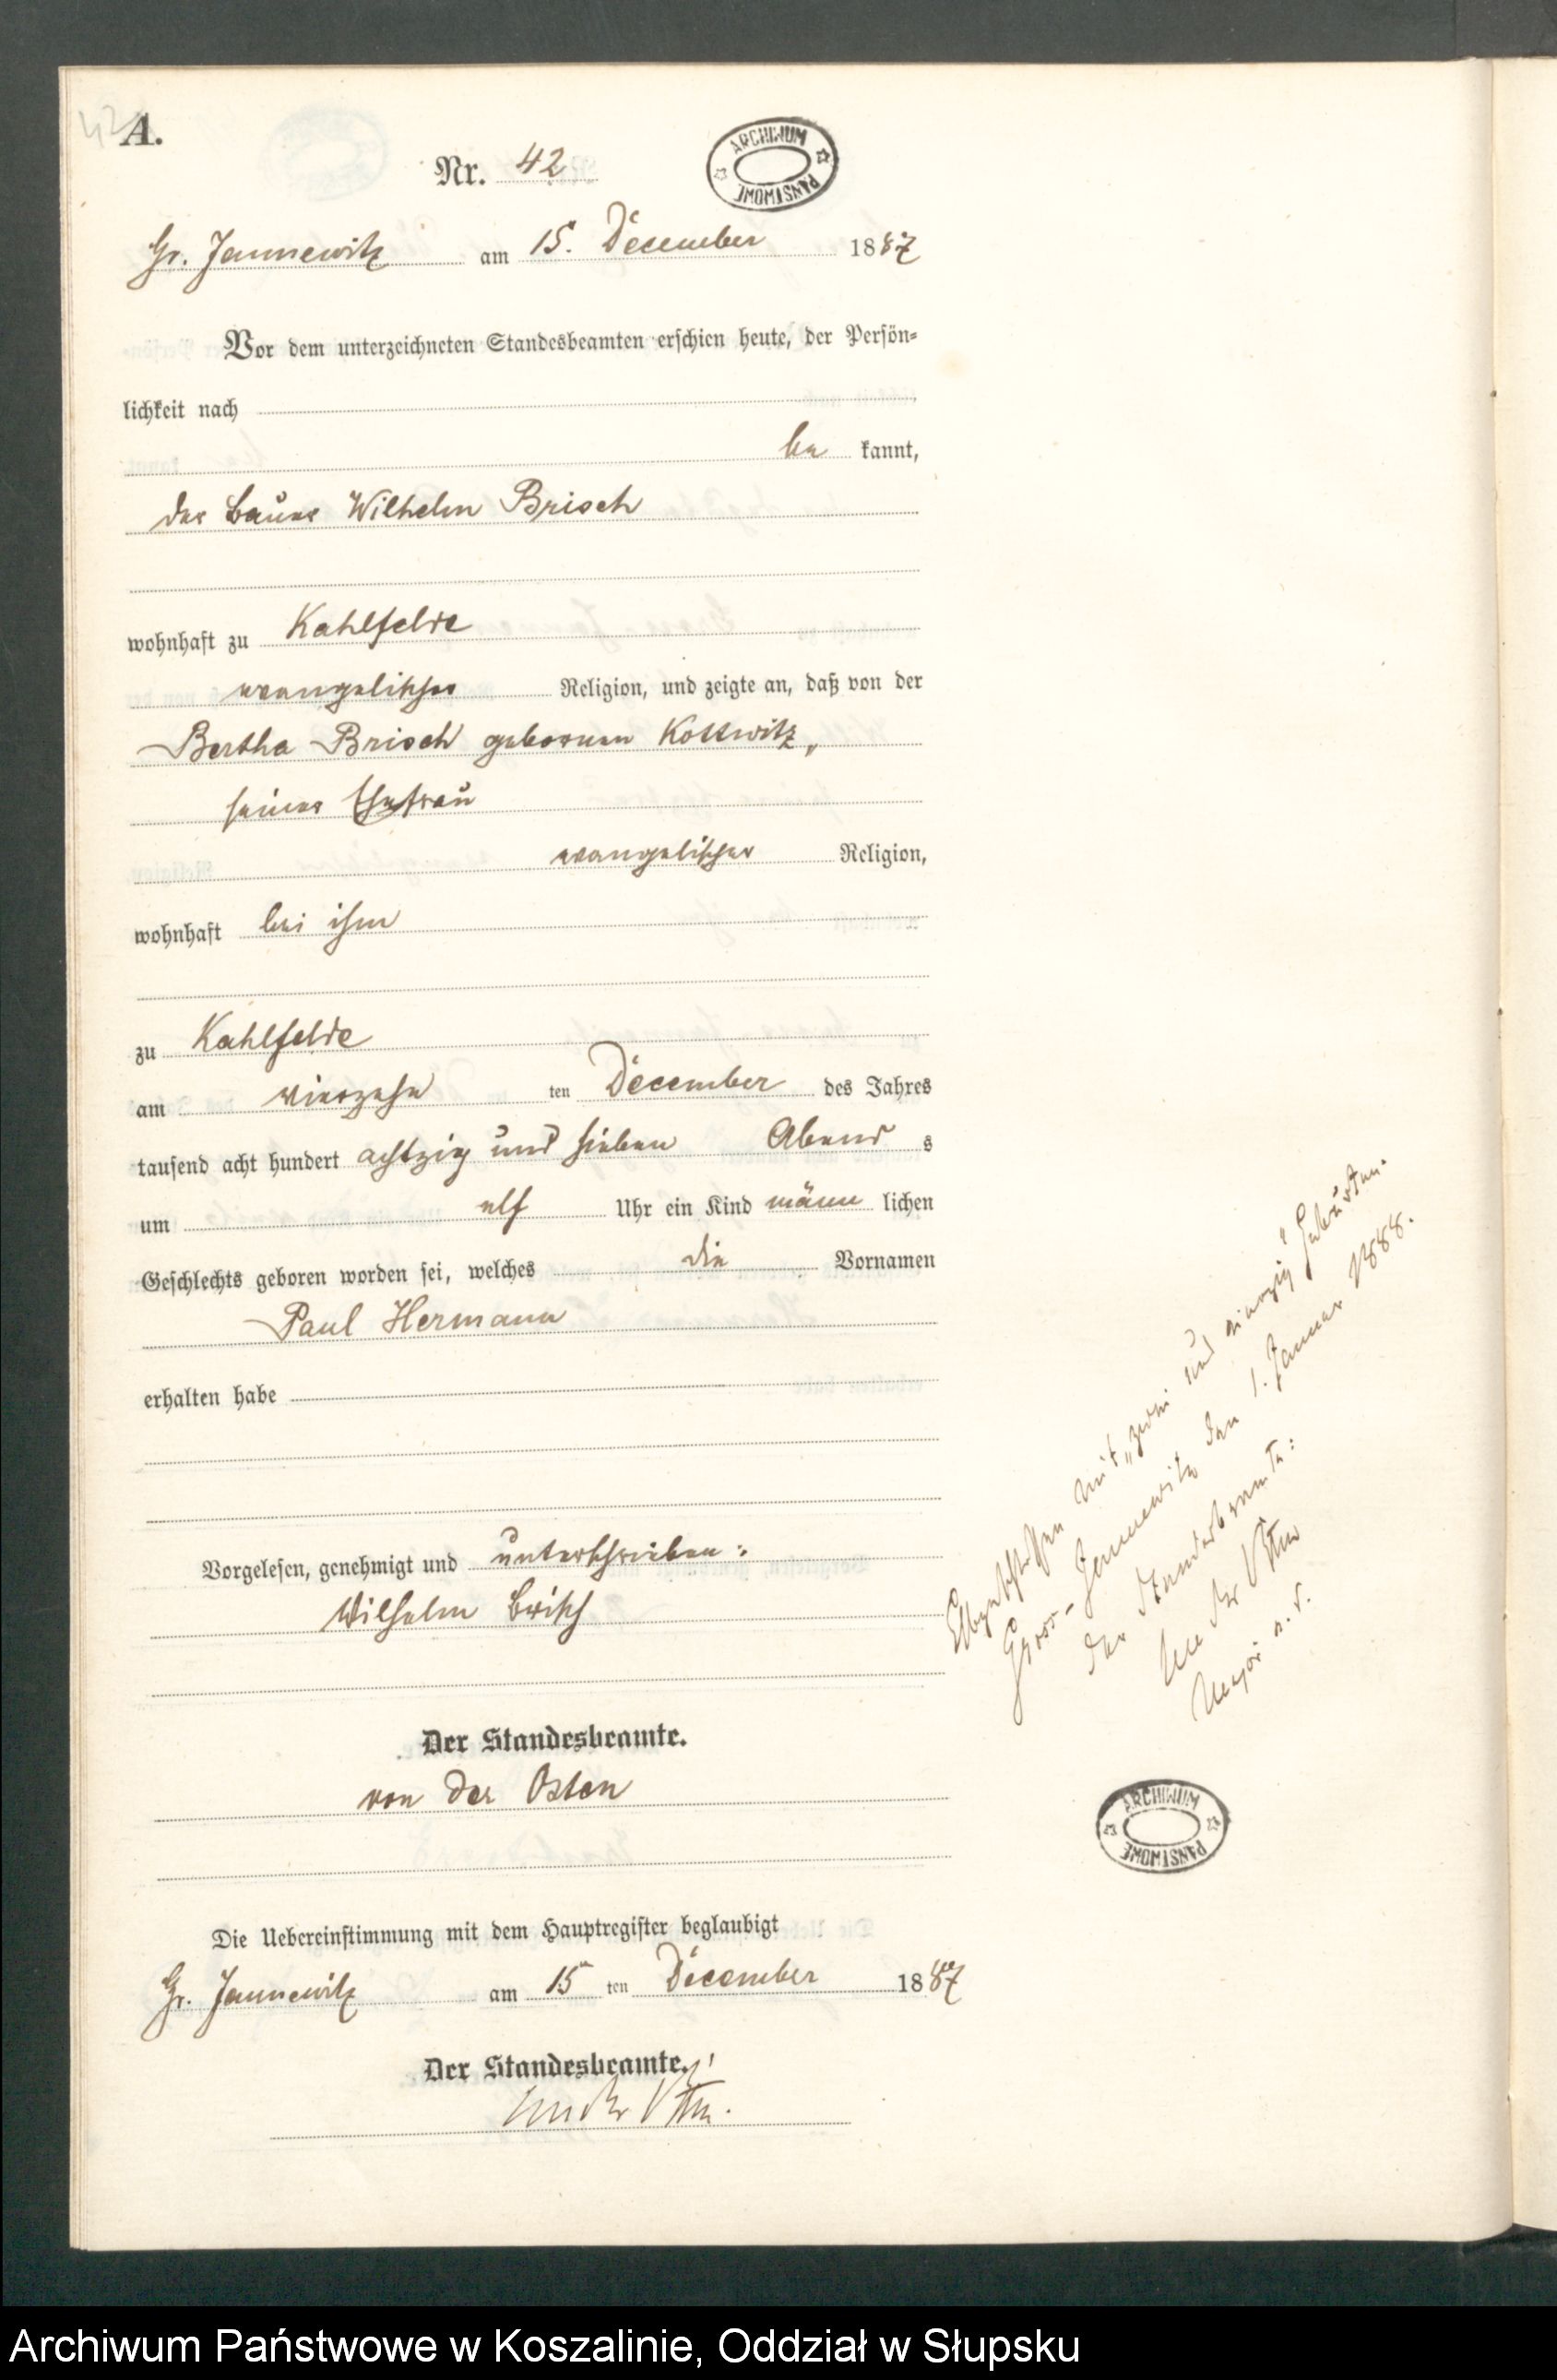 42
A.
Nr. 42
ARCHIWUM PAŃSTWOWE
Gr. Jannewitz am 15. December 1887
Vor dem unterzeichneten Standesbeamten erschien heute, der Persön-
lichkeit nach
be kannt,
der Bauer Wilhelm Brisch
wohnhaft zu Kahlfelde
evangelischer Religion, und zeigte an, daß von der
Bertha Brisch geborenen Kottwitz,
seiner Ehefrau
evangelischer Religion,
wohnhaft bei ihm
zu Kahlfelde
am vierzehn ten December des Jahres
tausend acht hundert achtzig und sieben Abend s
um elf Uhr ein Kind männ lichen
Geschlechts geboren worden sei, welches die Vornamen
Paul Hermann
erhalten habe
Vorgelesen, genehmigt und unterschrieben:
Wilhelm Brisch
Der Standesbeamte.
von der Osten
Die Uebereinstimmung mit dem Hauptregister beglaubigt
Gr. Jannewitz am 15 ten December 1887
Der Standesbeamte.
von der Osten.
Abgeschlossen mit „zwei und vierzig" Geburten.
Gross-Jannewitz den 1. Januar 1888.
Der Standesbeamte:
von der Osten
Major a. D.
ARCHIWUM PAŃSTWOWE
Archiwum Państwowe w Koszalinie, Oddział w Słupsku